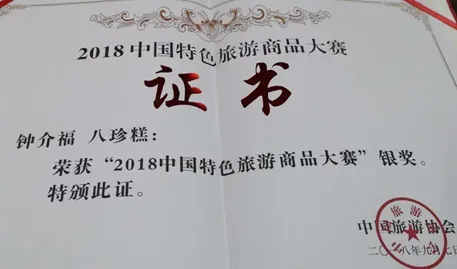 2018中国特色旅游商品大赛
证书
钟介福 八珍糕：
荣获“2018中国特色旅游商品大赛”银奖。
特颁此证。
中国旅游协会
二〇一八年九月七日